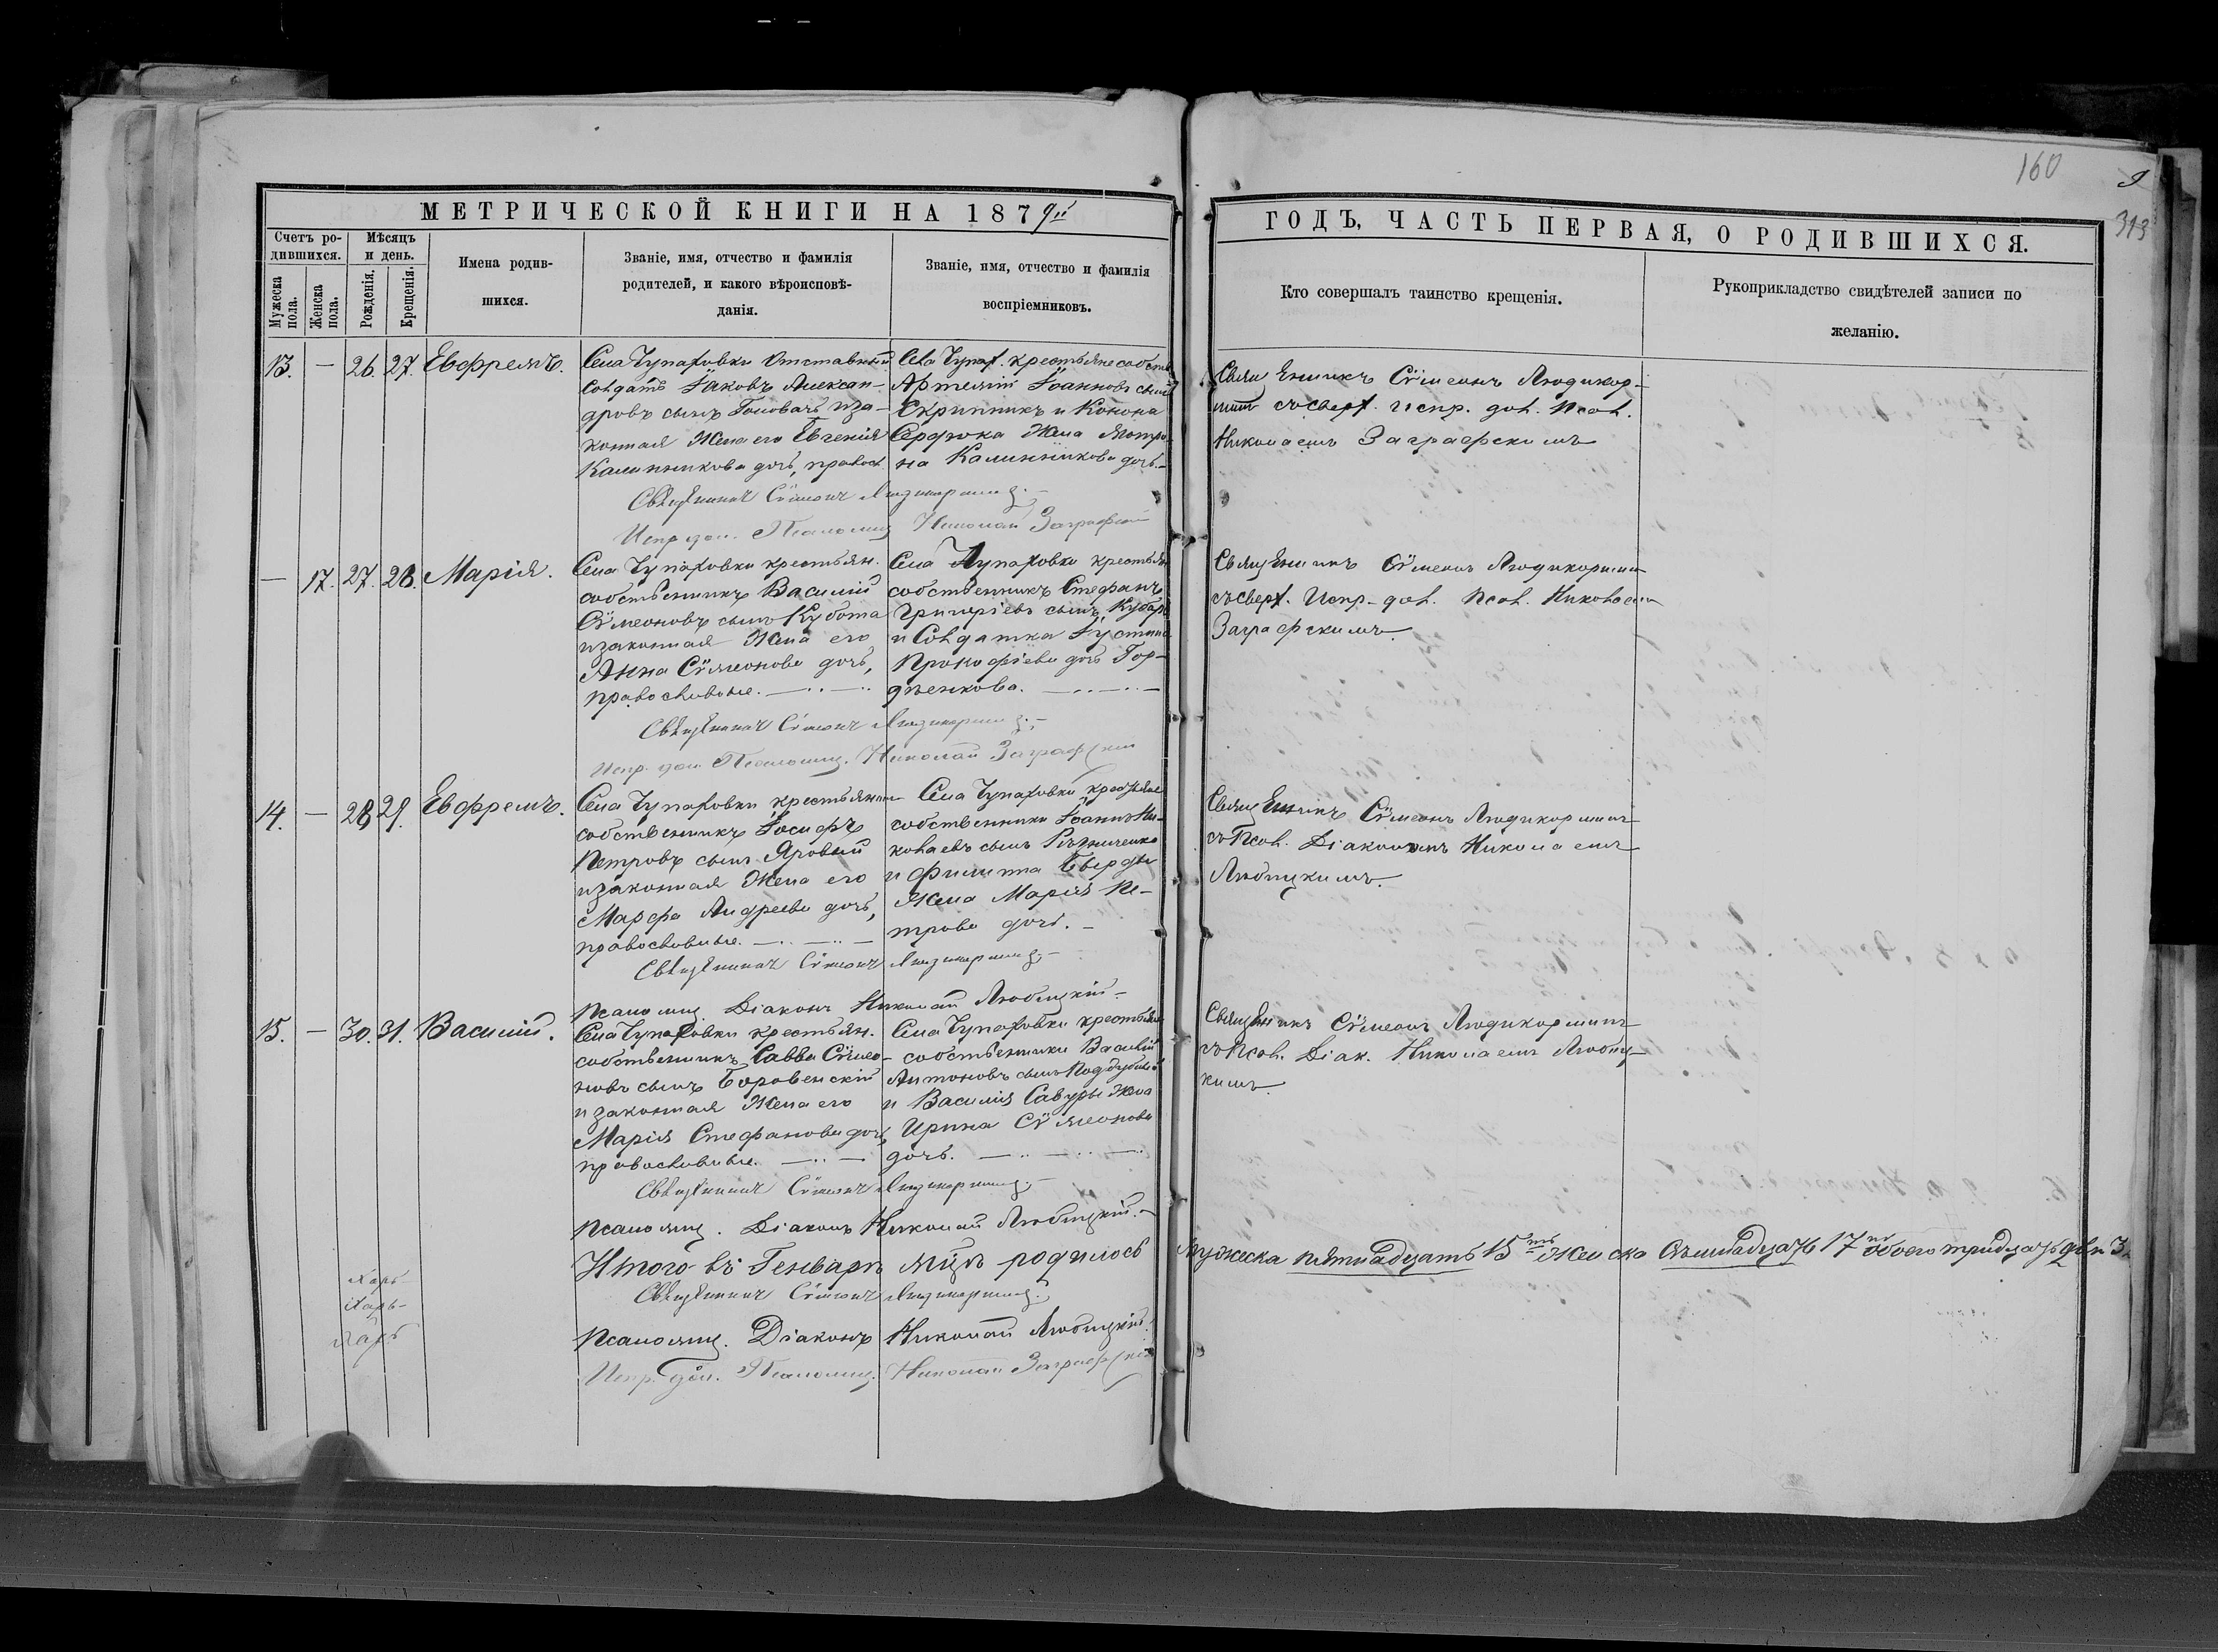 160
9
313
МЕТРИЧЕСКОЙ КНИГИ НА 1879й
ГОДЪ, ЧАСТЬ ПЕРВАЯ, О РОДИВШИХСЯ.
Счетъ ро-
дившихся.
Мужеска
пола.
Женска
пола.
Мѣсяцъ
и день.
Рожденія.
Крещенія.
Имена родив-
шихся.
Званіе, имя, отчество и фамилія
родителей, и какого вѣроисповѣ-
данія.
Званіе, имя, отчество и фамилія
воспріемниковъ.
Кто совершалъ таинство крещенія.
Рукоприкладство свидѣтелей записи по
желанію.
13. — 26. 27. Евфремъ.
Села Чупаховки Отставный
солдатъ Іаковъ Алексан-
дровъ сынъ Головачъ и за-
конная жена его Евгенія
Калинникова дочь, правосл.
Села Чупах. крестьяне собств.
Артемій Іоанновъ сынъ
Скрипникъ и Конона
Сердюка жена Мотро-
на Калинникова дочь.—
Священникъ Сѵмеонъ Людикор-
минъ съ сверх. испр. дол. псал.
Николаемъ Заграфскимъ
Священникъ Сѵмеонъ
Испр. дол. Псаломщ. Николай Заграфскій
— 17. 27. 28. Марія.
Села Чупаховки крестьян.
собственникъ Василій
Сѵмеоновъ сынъ Кубота
и законная жена его
Анна Сѵмеонова дочь,
православные. —..—..
Села Чупаховки крестьян
собственникъ Стефанъ
Григоріевъ сынъ
и Солдатка Іустина
Прокофіева дочь Гор-
дѣенкова. —..—..—
Священникъ Сѵмеонъ Людикорминъ
съ сверх. Испр. дол. псал. Николаемъ
Заграфскимъ.
Священникъ Сѵмеонъ
Испр. дол. Псаломщ. Николай Заграфскій
14. — 28. 29. Евфремъ.
Села Чупаховки крестьянинъ
собственникъ Іосифъ
Петровъ сынъ Яровый
и законная жена его
Марфа Андреева дочь,
православные. —..—..—
Села Чупаховки крестьяне
собственники Іоаннъ Ни-
колаевъ сынъ
и Филиппа
жена Марія Пе-
трова дочь. —
Священникъ Сѵмеонъ Людикорминъ
съ псал. Діакономъ Николаемъ
Любицкимъ.
Священникъ Сѵмеонъ
Псаломщ. Діаконъ Николай Любицкій.—
15. — 30. 31. Василій.
Села Чупаховки крестьян.
собственникъ Савва Сѵмео-
новъ сынъ Боровенскій
и законная жена его
Марія Стефанова дочь,
православные. —..—
Села Чупаховки крестьяне
собственники Василій
Антоновъ сынъ Поддубный
и Василія Савуры жена
Ирина Сѵмеонова
дочь. —..—..—
Священникъ Сѵмеонъ Людикорминъ
съ псал. Діак. Николаемъ Любиц-
кимъ.
Священникъ Сѵмеонъ
Псаломщ. Діаконъ Николай Любицкій.—
Итого въ Генварѣ мцѣ родилось мужеска пятнадцать 15ть женска семнадцать 17 обоего тридцать два 32
Священникъ Сѵмеонъ
Псаломщ. Діаконъ Николай Любицкій.
Испр. дол. Псаломщ. Николай Заграфскій
Харь-
Харь-